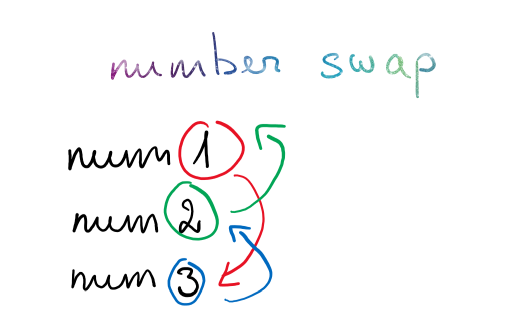 number swap
num 1
num 2
num 3